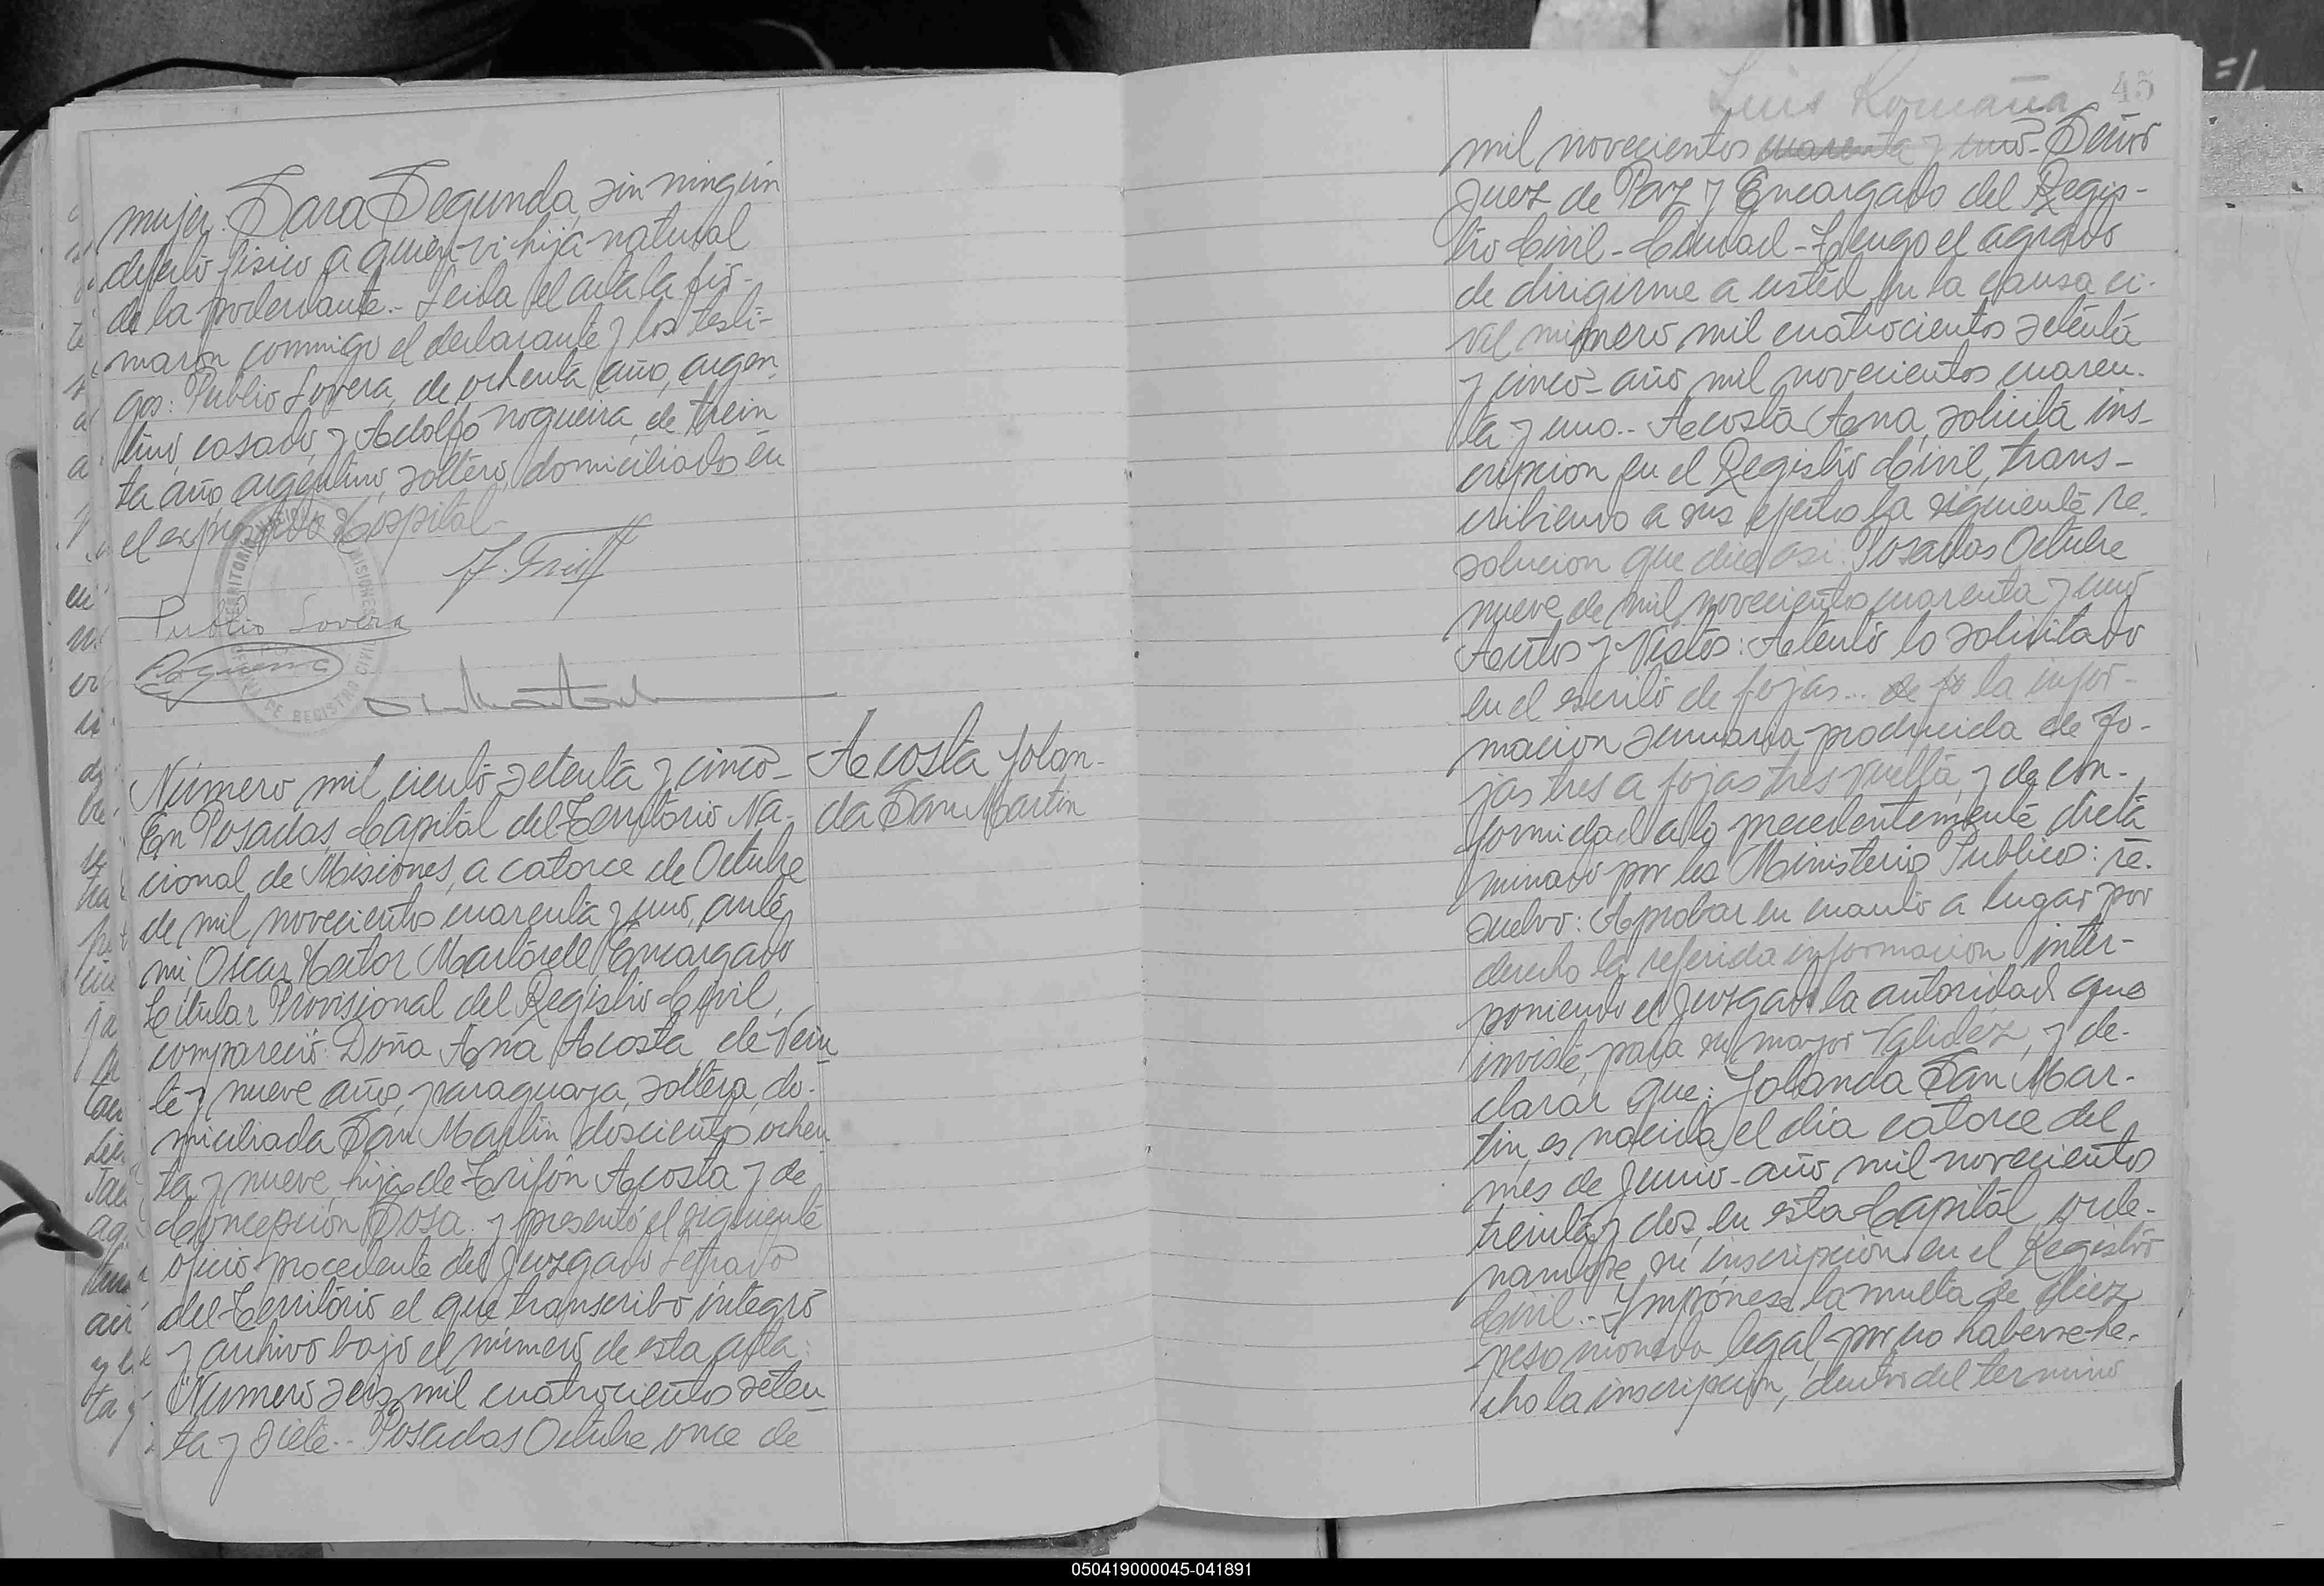 mujer. Sara Segunda, sin ningun
defecto fisico a quien vi hija natural
de la poderdante.- Leida el acta la fir-
maron conmigo el declarante y los testi-
gos: Publio Lovera, de ochenta año, argen
tino, casado, y Adolfo Nogueira, de trein
ta año, argentino, soltero, domiciliados en
el expresado Hospital-
Publio Lovera
Número mil ciento setenta y cinco-
En Posadas, Capital del Territorio Na-
cional de Misiones, a catorce de Octubre
de mil novecientos cuarenta y uno, ante
mi, Oscar Hector Martorell Encargado
Titular Provisional del Registro Civil,
compareció: Doña Ana Acosta, de vein
te y nueve año, paraguaya, soltera, do-
miciliada San Martin doscientos ochen
ta y nueve, hija de Trifón Acosta y de
Concepción Sosa, y presentó el siguiente
oficio procedente del Juzgado Letrado
del Territorio el que transcribo integro
y archivo bajo el número de esta acta:
Número seis mil cuatrocientos seten
ta y siete.- Posadas Octubre once de
Acosta Jolan-
da San Martin
Luis Romaña 45
mil novecientos cuarenta y uno- Señor
Juez de Paz y Encargado del Regis-
tro Civil- Ciudad- Tengo el agrado
de dirigirme a usted en la causa ci-
vil número mil cuatrocientos setenta
y cinco- año mil novecientos cuaren-
ta y uno.- Acosta Ana, solicita ins-
cripcion en el Registro Civil, trans-
cribiendo a sus efectos la siguiente re-
solucion que dice asi: Posadas Octubre
nueve de mil novecientos cuarenta y uno
Autos y Vistos: Atento lo solicitado
en el escrito de fojas... de fs la infor-
macion sumaria producida de fo-
jas tres a fojas tres vuelta, y de con-
formidad a lo precedentemente dicta
minado por los Ministerios Publicos: re-
suelvo: Aprobar en cuanto a lugar por
derecho la referida informacion inter-
poniendo el Juzgado la autoridad que
inviste, para su mayor validez, y de-
clarar que: Jolanda San Mar-
tin, es nacida el dia catorce del
mes de Junio- año mil novecientos
treinta y dos, en esta Capital orde-
nandose su inscripcion en el Registro
Civil.- Imponese la multa de diez
peso moneda legal por no haberse he-
cho la inscripcion, dentro del termino
050419000045-041891